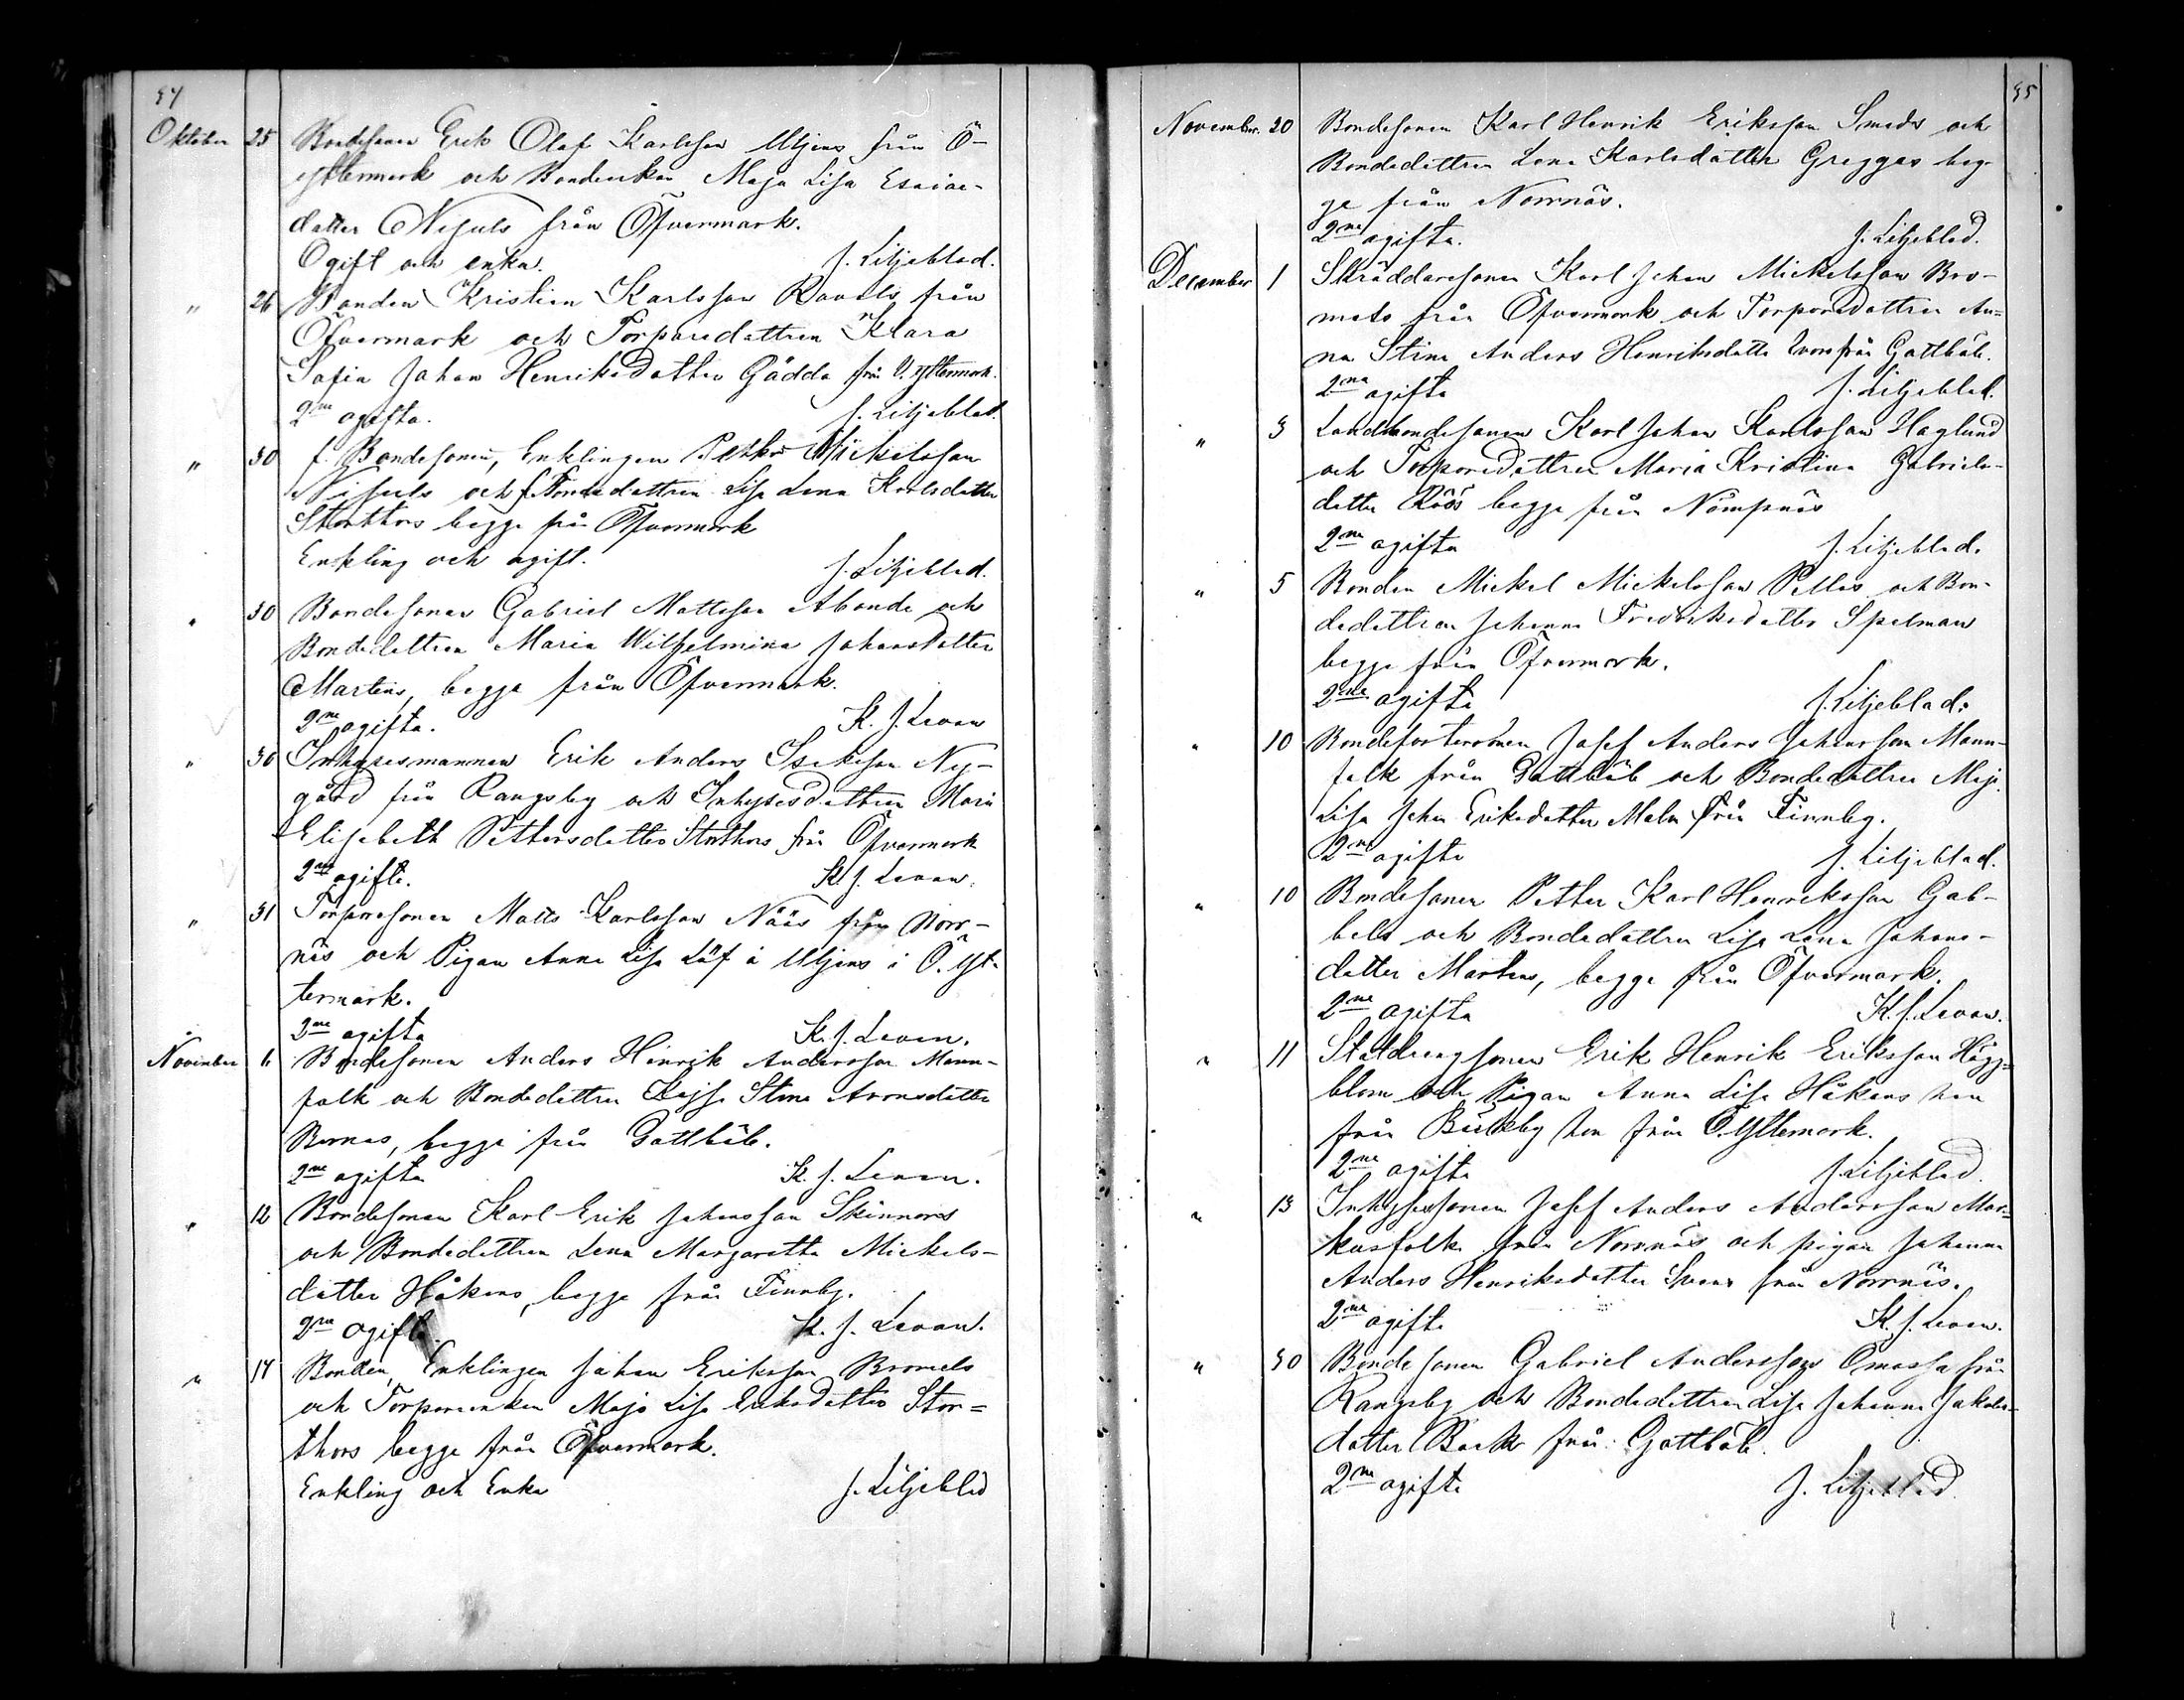 54
Oktober 25 Bondesonen Erik Olof Karlsson Utjens från Ö-
yttermark och Bondeenkan Maja Lisa Esaias-
datter Nisuls från Öfvermark.
Ogift och enka. J. Liljeblad.
" 26 Bonden Kristian Karlsson Ravals från
Öfvermark och Torparedattren Klara
Sofia Johan Henriksdatter Gädda från Ö. Yttermark.
2ne ogifta. J. Liljeblad.
" 30 f. Bondesonen, Enklingen Petter Mickelsson
Nisuls och f. Bondedattren Lisa Lena Karlsdatter
Storthors begge från Öfvermark
Enkling och ogift. J. Liljeblad.
" 30 Bondesonen Gabriel Mattsson Abonde och
Bondedattren Maria Wilhelmina Johansdatter
Martins, begge från Öfvermark.
2ne ogifta. K. J. Levan
" 30 Inhysesmannen Erik Anders Isaksson Ny-
gård från Rangsby och Inhysesdattren Maria
Elisabeth Pettersdatter Storthors från Öfvermark
2ne ogifta. K. J. Levan.
" 31 Torparesonen Matts Karlsson Nääs från Norr-
näs och Pigan Anna Lisa Löf å Utjens i Ö. Yt-
termark.
2ne ogifta K. J. Levan.
November 6 Bondesonen Anders Hinrik Andersson Mann-
folk och Bondedattren Kajsa Stina Aronsdatter
begge från Gottböle.
2ne ogifta K. J. Levan.
" 12 Bondesonen Karl Erik Johansson Skinnars
och Bondedattren Lena Margaretha Mickels-
datter Håkans, begge från Finnby.
2ne ogifta. K. J. Levan.
" 14 Bonden, Enklingen Johan Eriksson Bromels
och Torpareenkan Maja Lisa Eriksdatter Stor=
thors begge från Öfvermark.
Enkling och Enka J. Liljeblad
55
November. 20 Bondesonen Karl Henrik Eriksson Smeds och
Bondedattren Lena Karlsdatter Greggas beg-
ge från Norrnäs.
2ne ogifta. J. Liljeblad.
December 1 Skräddaresonen Karl Johan Mickelsson Bro-
mels från Öfvermark och Torparedattren An=
na Stina Anders Henriksdatter från Gottböle.
2ne ogifta J. Liljeblad.
" 3 Landbondesonen Karl Johan Karlsson Haglund
och Torparedattren Maria Kristina Gabriels-
datter Röös begge från Nämpnäs
2ne ogifta J. Liljeblad.
" 5 Bonden Mickel Mickelsson Pellas och Bon-
dedattren Johanna Fredriksdatter Spelman
begge från Öfvermark.
2ne ogifta J. Liljeblad.
" 10 Bondefostersonen Josef Anders Johansson Mann-
folk från Gottböle och Bondedattren Maja
Lisa Johan Eriksdatter Malm från Finnby.
2ne ogifta J. Liljeblad.
" 10 Bondesonen Petter Karl Henriksson Gab-
bels och Bondedattren Lisa Lena Johans-
datter Martens, begge från Öfvermark.
2ne ogifta K. J. Levan.
" 11 Statdrengsonen Erik Henrik Eriksson Hägg=
blom och Pigan Anna Lisa Håkans han
från Bäckby hon från Ö. Yttermark.
2ne ogifta J. Liljeblad.
" 13 Inhysessonen Josef Anders Andersson Mar=
kusfolk från Norrnäs och pigan Johanna
Anders Henriksdatter Svens från Norrnäs.
2ne ogifta K. J. Levan.
" 30 Bondesonen Gabriel Andersson Omossa från
Rangsby och Bondedattren Lisa Johanna Jakobs-
datter Back från Gottböle.
2ne ogifta J. Liljeblad.